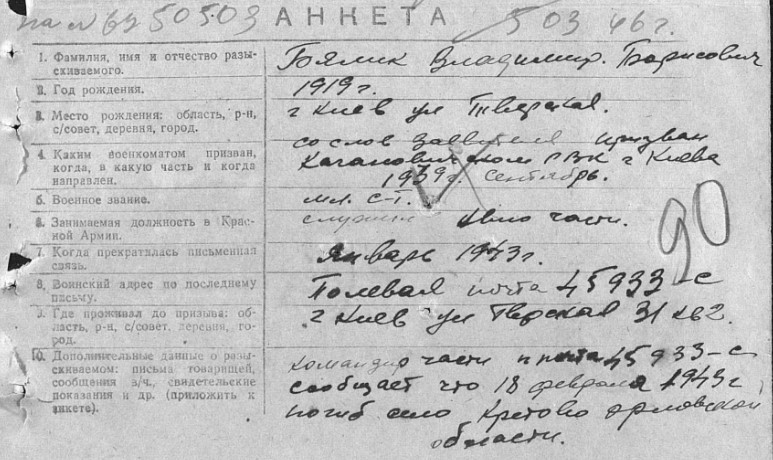 на № 6250503 АНКЕТА 5 03 46 г.
1. Фамилия, имя и отчество разы-
скиваемого.
Бялик Владимир. Борисович
2. Год рождения.
1919 г.
3. Место рождения: область, р-н,
с/совет, деревня, город.
г Киев ул Тверская.
4. Каким военкоматом призван,
когда, в какую часть и когда
направлен.
со слов заявителя призван
Кагановическом РВК г Киева
1939 г. Сентябрь.
5. Военное звание.
мл. с-т.
6. Занимаемая должность в Крас-
ной Армии.
части.
7. Когда прекратялась письменная
связь.
Январь 1943 г.
8. Воинский адрес по последнему
письму.
Полевая почта 45933-с
9. Где проживал до призыва: об-
ласть, р-н, с/совет, деревня, го-
род.
г Киев ул Тверская 31 кв 2.
10. Дополнительные данные о разы-
скиваемом: письма товарищей,
сообщения в/ч., свидетельские
показания и др. (приложить к
анкете).
командир части п почта 45933-с
сообщает что 18 февраля 1943 г
погиб село Кретово орловской
области.
90